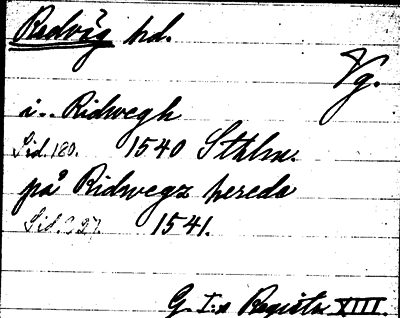 Redväg hd.
Vg.
i.. Ridwegh
Sid. 180. 1540 Sthlm.
på Ridwegz hereda
Sid. 1541.
G. I:s Registr XIII.